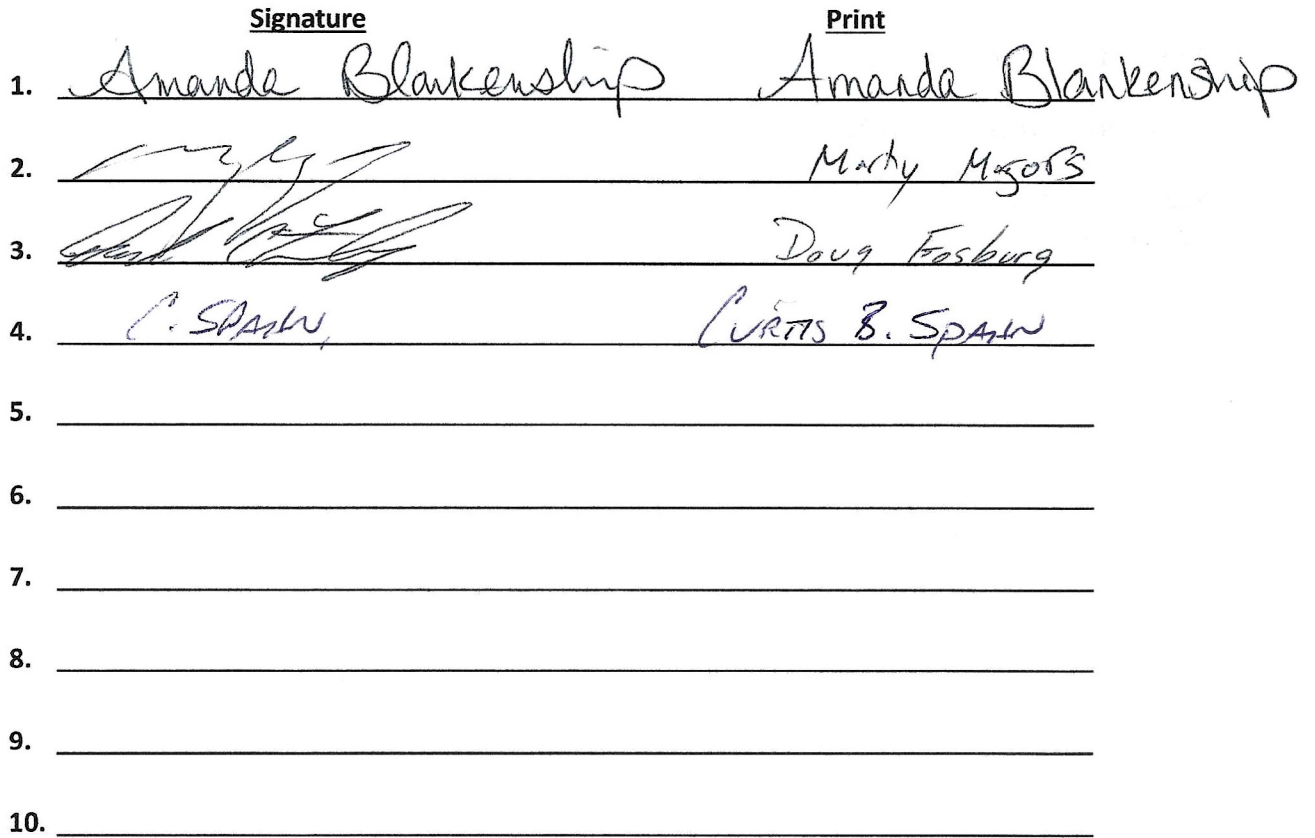 Signature Print
1. Amanda Blankenship Amanda Blankenship
2. Marty
3. Doug Fosburg
4. C. SPAIN, CURTIS B. SPAIN
5.
6.
7.
8.
9.
10.